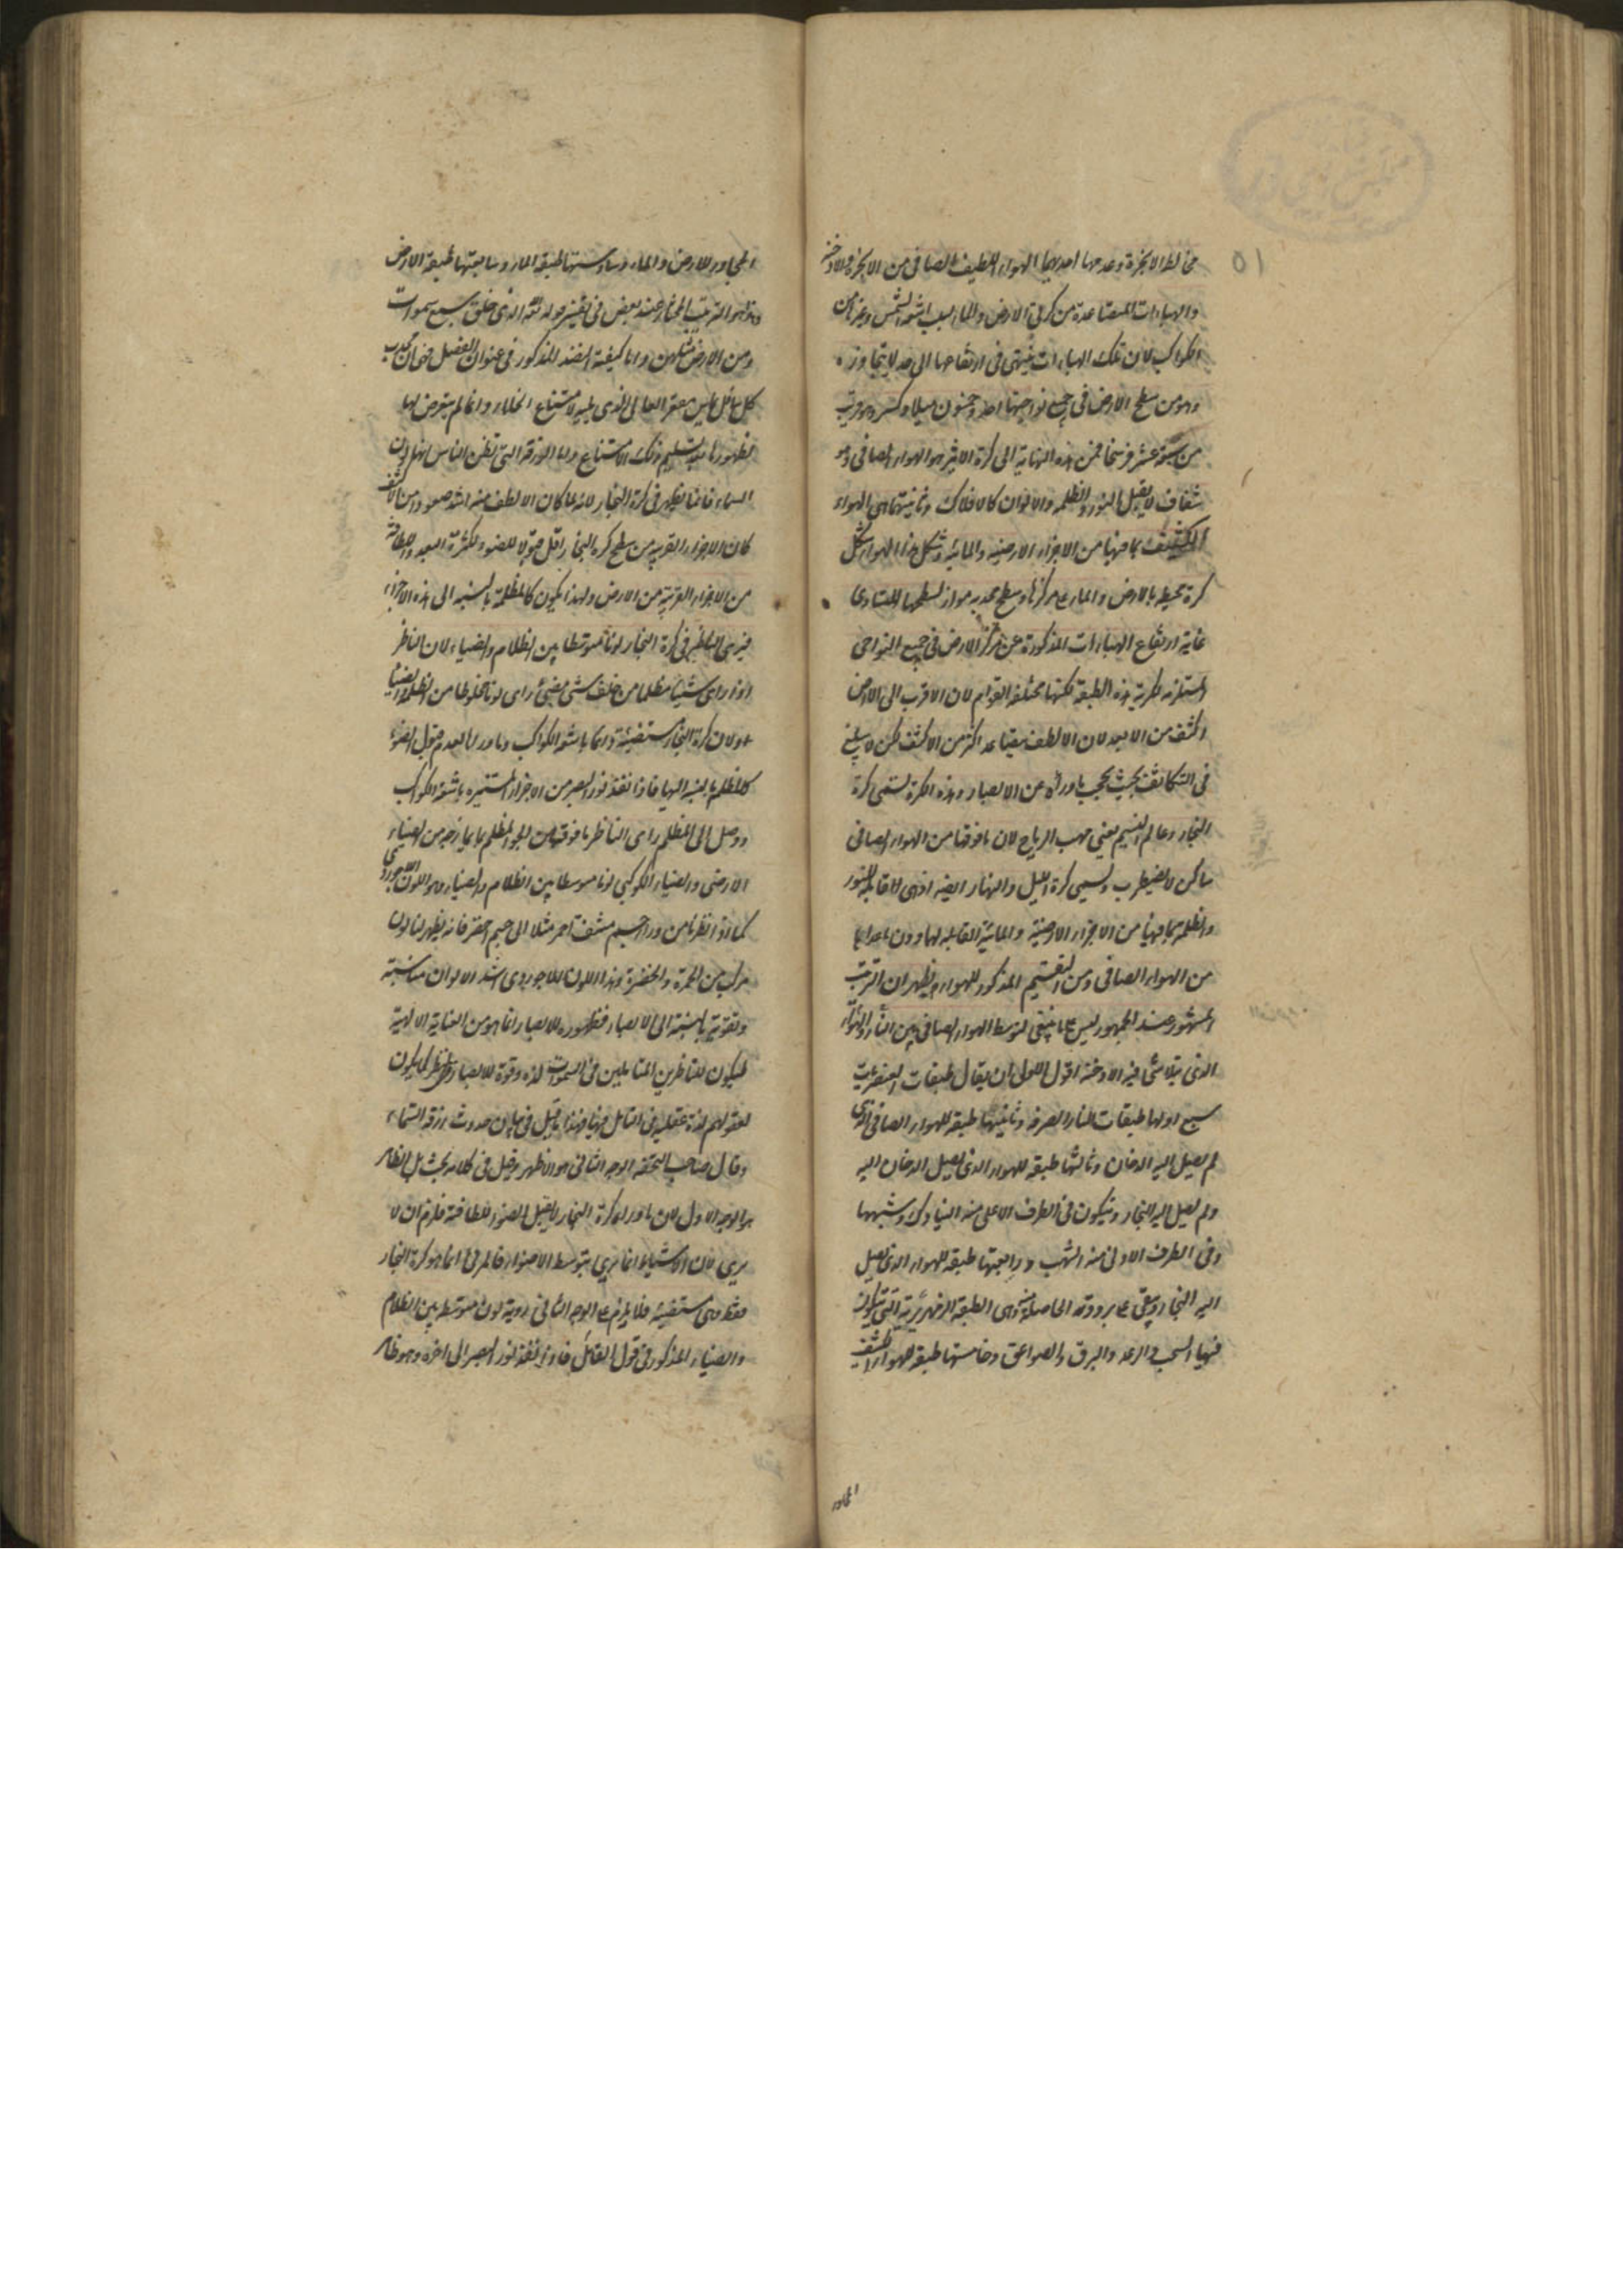 ٥١
مخالطة الابخرة وعدمها احديهما الهواء اللطيف الصافى من الابخرة والادخنة
والهباءات المتصاعدة من كرتى الارض والماء بسبب اشعة الشمس وغيرها من
الكواكب لان تلك الهباءات ينتهى فى ارتفاعها الى حد لا يتجاوزه
وهو من سطح الارض فى جميع نواحيها احد وخمسون ميلا وكسر وهو قريب
من سبعة عشر فرسخا فمن هذه النهاية الى كرة الاثير هو الهواء الصافى وهو
شفاف لا يقبل النور والظلمة والالوان كالافلاك وثانيتهما هى الهواء
المتكثف بما فيها من الاجزاء الارضية والمائية وشكل هذا الهواء شكل
كرة محيطة بالارض والماء على مركزها وسطح محدبه مواز لسطحها لتساوى
غاية ارتفاع الهباءات المذكورة عن مركز الارض فى جميع النواحى
المستلزم لكرية هذه الطبقة لكنها مختلفة القوام لان الاقرب الى الارض
اكثف من الابعد لان الالطف يتصاعد اكثر من الاكثف لكن لا يبلغ
فى التكاثف بحيث يحجب ما وراءه عن الابصار وهذه الكرة تسمى كرة
البخار وعالم النسيم يعنى مهب الرياح لان ما فوقها من الهواء الصافى
ساكن لا يضطرب ويسمى كرة الليل والنهار ايضا اذ هى القابلة للنور
والظلمة بما فيها من الاجزاء الارضية والمائية القابلة لها دون ما عداها
من الهواء الصافى ومن التقسيم المذكور للهواء يظهر ان الترتيب
المشهور عند الجمهور ليس على ما ينبغى لتوسط الهواء الصافى بين النار والهواء
الذى يتلاشى فيه الادخنة اقول الاولى ان يقال طبقات العنصريات
سبع اولها طبقات للنار الصرفة وثانيتها طبقة للهواء الصافى الذى
لم يصل اليه الدخان وثالثها طبقة للهواء الذى يصل الدخان اليه
ولم يصل اليه البخار ويتكون فى الطرف الاعلى منه النيازك وشبهها
وفى الطرف الادنى منه الشهب ورابعتها طبقة للهواء الذى يصل
اليه البخار ويبقى على برودته الحاصلة وهى الطبقة الزمهريرية التى يتكون
فيها السحب والرعد والبرق والصواعق وخامستها طبقة للهواء الكثيف
المجاور
المجاور للارض والماء وسادستها طبقة الماء وسابعتها طبقة الارض
وهذا هو الترتيب المختار عند بعض فى تفسير قوله تعالى الذى خلق سبع سموات
ومن الارض مثلهن واما كيفية النضد المذكور فى عنوان الفصل فهى ان محدب
كل سافل يماس مقعر العالى الذى يليه لامتناع الخلاء وانما لم يتعرض لها
لظهورها بعد تسليم ذلك الامتناع واما الزرقة التى يظن الناس انها لون
السماء فانما يظهر فى كرة البخار لانه لما كان الالطف منه اشد صعودا من الاكثف
كان الاجزاء القريبة من سطح كرة البخار اقل قبولا للضوء لكثرة البعد واللطافة
من الاجزاء القريبة من الارض ولهذا يكون كالمظلمة بالنسبة الى هذه الاجزاء
فيرى الناظر فى كرة البخار لونا متوسطا بين الظلام والضياء لان الناظر
اذا راى شيئا مظلما من خلف شئ مضئ راى لونا مخلوطا من الظلمة والضياء
او لان كرة البخار مستضيئة دائما باشعة الكواكب وما وراءها لعدم قبول الضوء
كالمظلم بالنسبة اليها فاذا نفذ نور البصر من الاجزاء المستنيرة باشعة الكواكب
ووصل الى المظلم راى الناظر ما فوقه من الجو المظلم بما يمازجه من الضياء
الارضى والضياء الكوكبى لونا متوسطا بين الظلام والضياء وهو اللون اللاجوردى
كما اذا نظرنا من وراء جسم مشف احمر مثلا الى جسم اخضر فانه يظهر لنا لون
مركب من الحمرة والخضرة وهذا اللون اللاجوردى اشد الالوان مناسبة
وتقوية بالنسبة الى الابصار فظهوره للابصار انما هو من العناية الالهية
ليكون للناظرين المتاملين فى السموات لذة وقوة للابصار والنظر كما يكون
لعقولهم لذة عقلية فى التامل فيها فهذا ما قيل فى بيان حدوث زرقة السماء
وقال صاحب التحفة الوجه الثانى هو الاظهر وفى كلامه بحث بل الظاهر
هو الوجه الاول لان ما وراء كرة البخار لا يقبل الضوء للطافته فلزم ان لا
يرى لان الاشياء انما يرى بتوسط الاضواء فالمرئى انما هو كرة البخار
فقط وهى مستضيئة فلا يلزم على الوجه الثانى روية لون متوسط بين الظلام
والضياء المذكور فى قول القائل فاذا نفذ نور البصر الى اخره وهو ظاهر